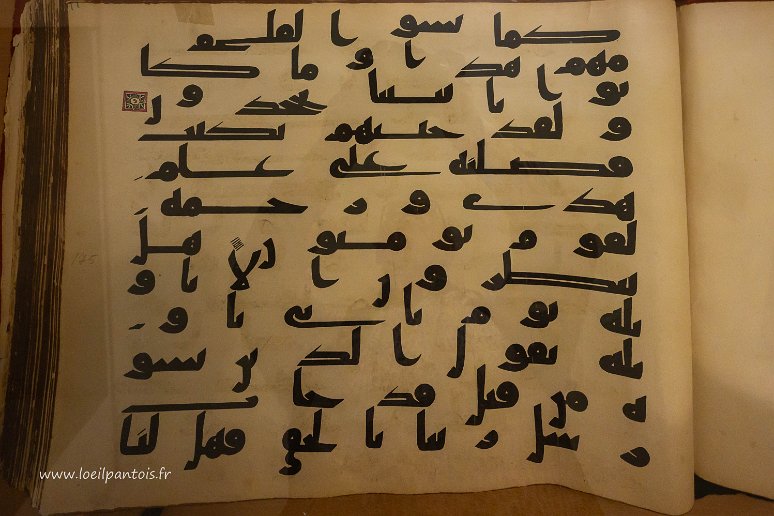 كما نسوا لقا يو
مهم هذا وما كا
نوا بايتنا يجحدون
ولقد جئنهم بكتب
فصلنه على علم
هدى ورحمة
لقوم يومنون هل
ينظرون الا تاو
يله يوم ياتي تاو
يله يقول الذين نسو
ه من قبل قد جا
ت رسل ربنا بالحق فهل لنا
175
www.loeilpantois.fr